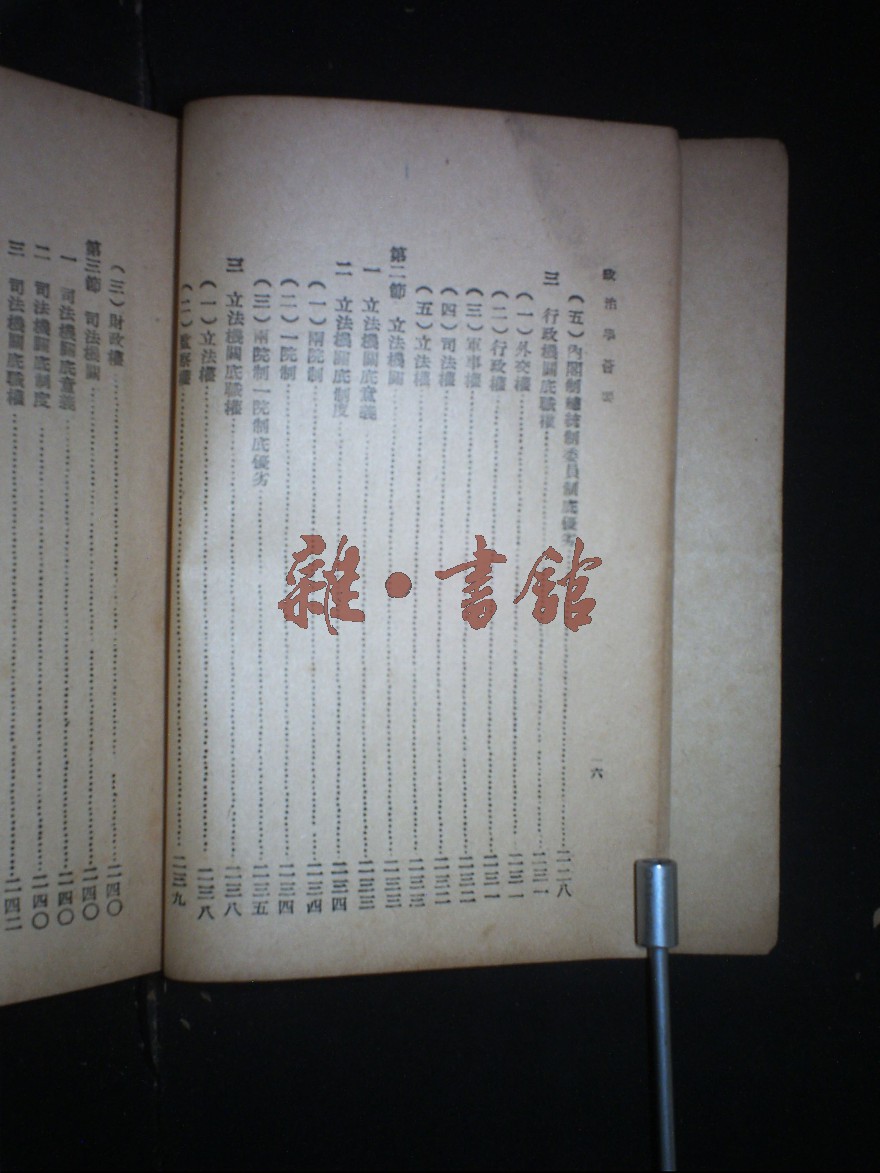 政治學薈要
一六
(五)內閣制總統制委員制底優劣……二二八
三 行政機關底職權……二三一
(一)外交權……二三一
(二)行政權……二三一
(三)軍事權……二三二
(四)司法權……二三二
(五)立法權……二三三
第二節 立法機關……二三三
一 立法機關底意義……二三三
二 立法機關底制度……二三四
(一)兩院制……二三四
(二)一院制……二三四
(三)兩院制一院制底優劣……二三五
三 立法機關底職權……二三八
(一)立法權……二三八
(二)監察權……二三九
(三)財政權……二四〇
第三節 司法機關……二四〇
一 司法機關底意義……二四〇
二 司法機關底制度……二四〇
三 司法機關底職權……二四二
雜·書館